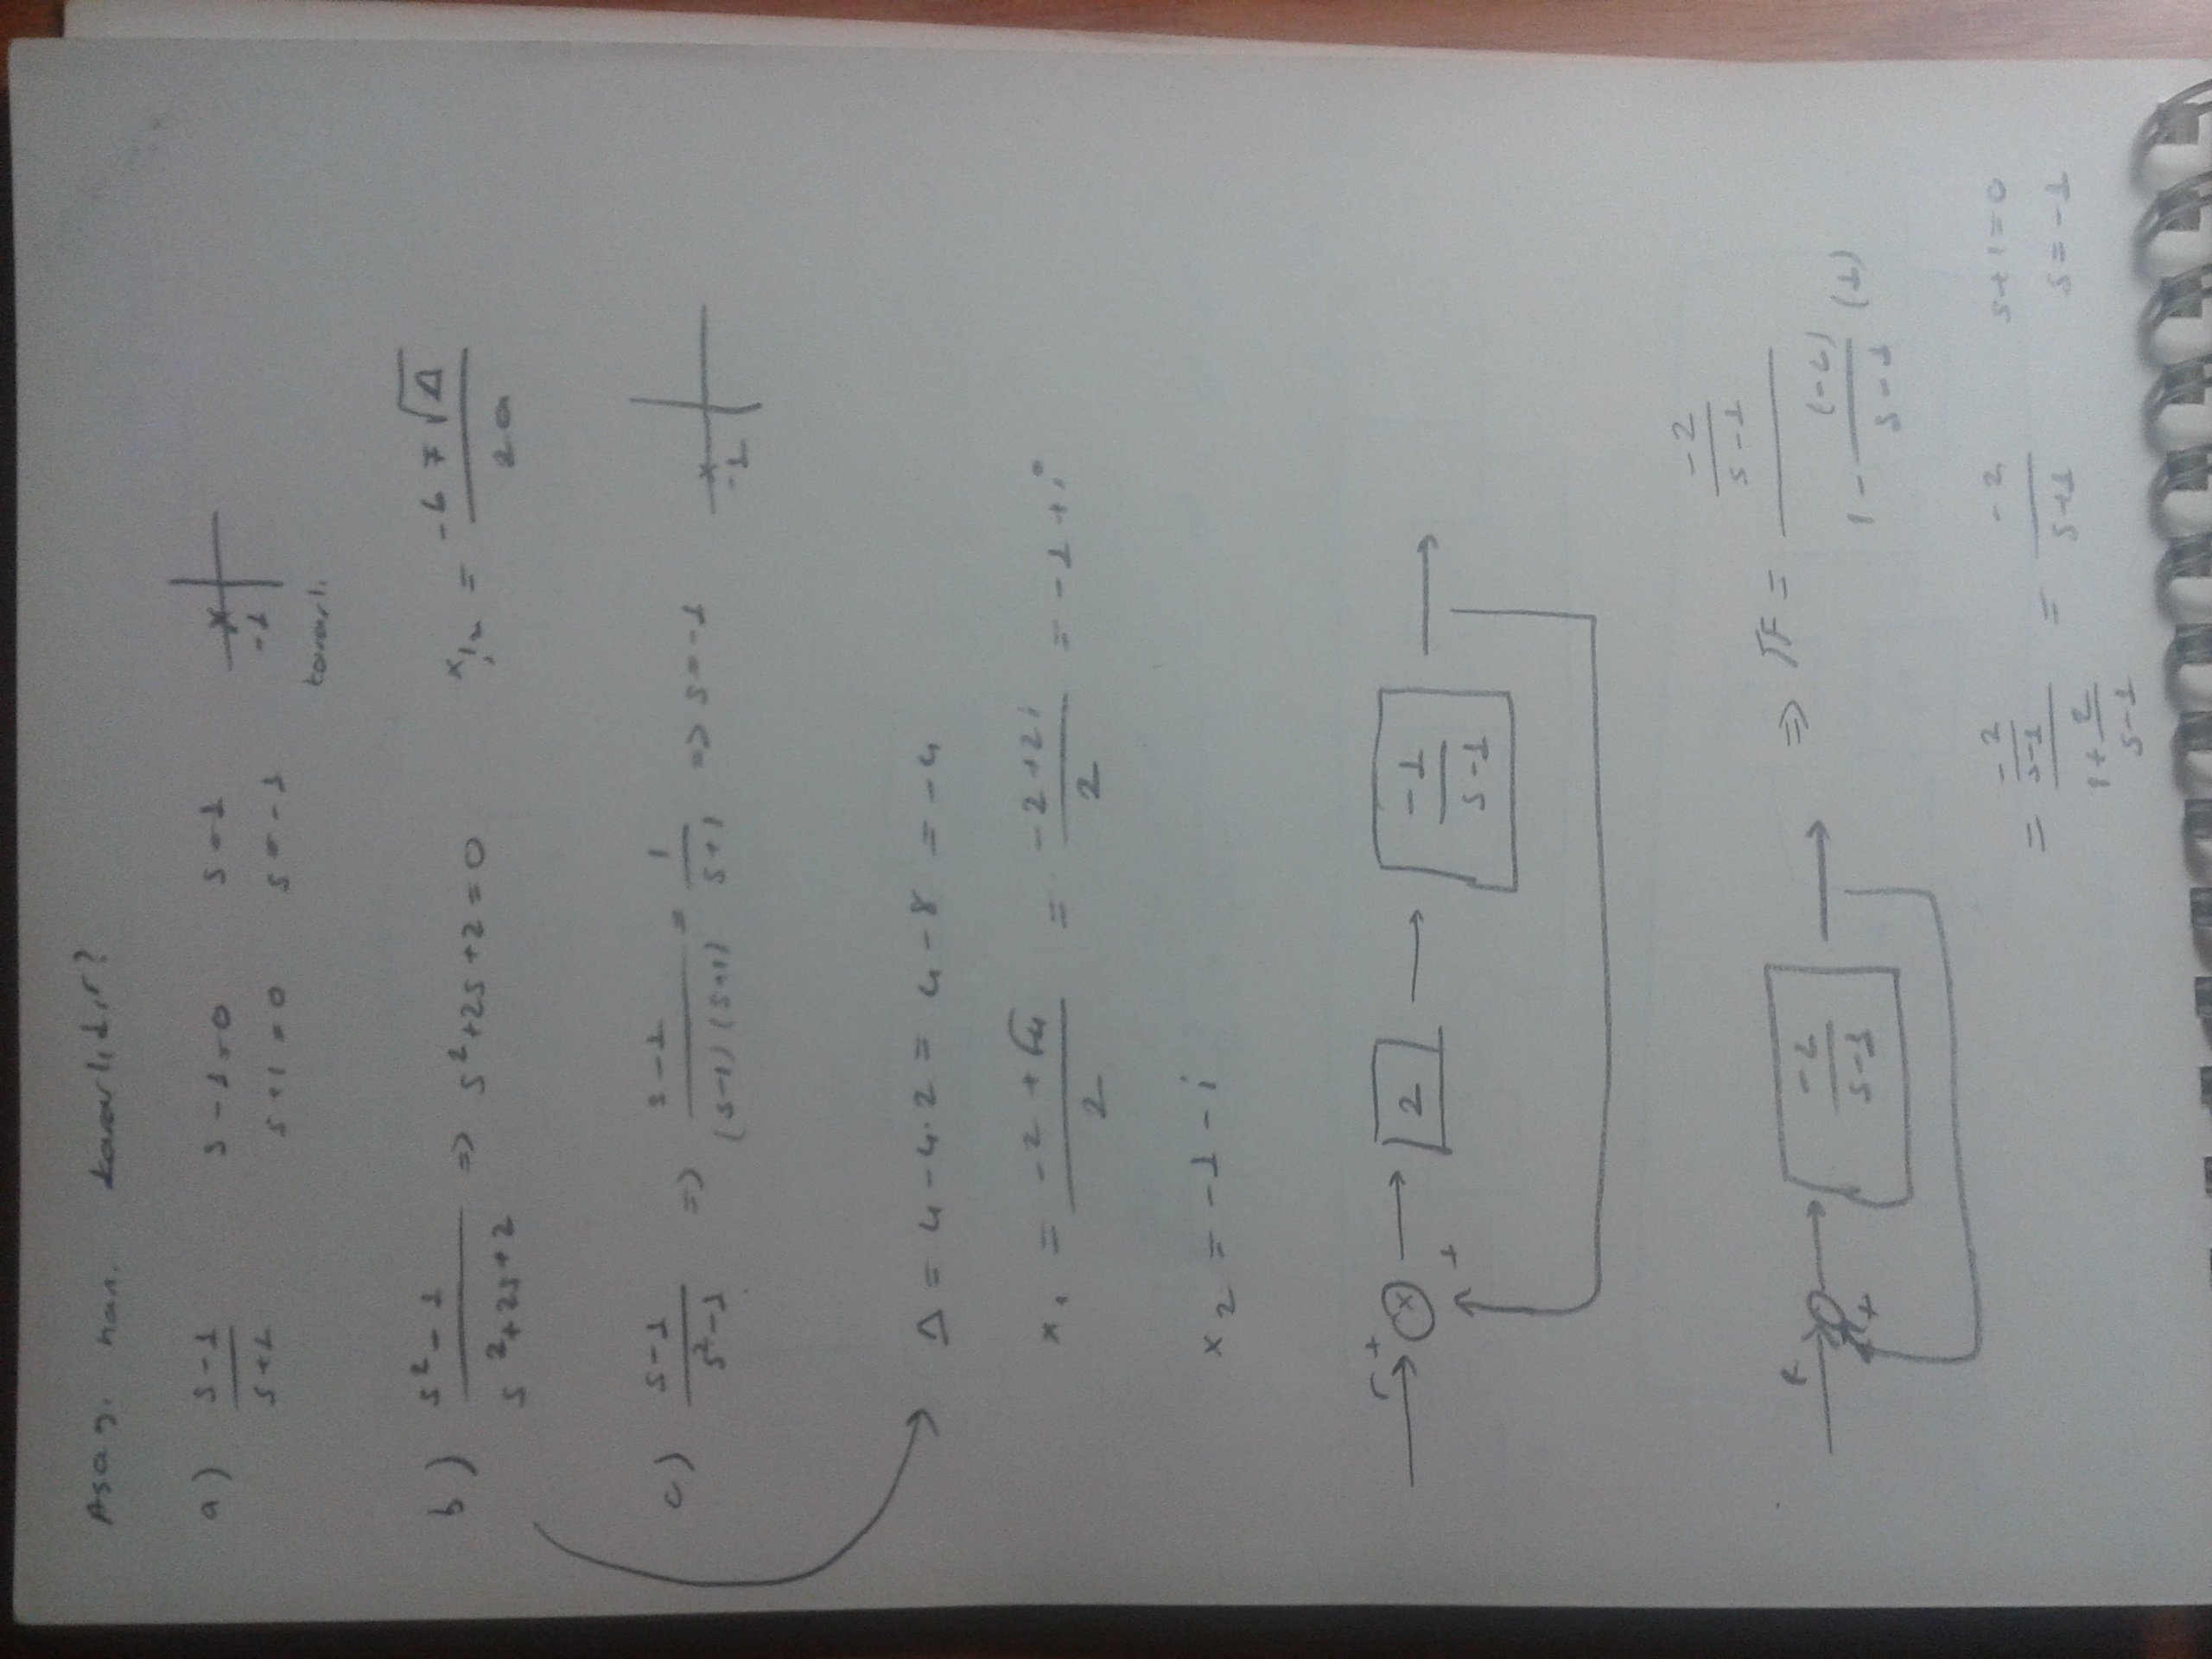 Asag. han. kararlıdır?
a) (s-1)/(s+1) s-1=0 s=1
s+1=0 s=-1 -1
kararlı
b) (s²-1)/(s²+2s+2) => s²+2s+2=0 x₁,₂ = (-b ∓ √Δ)/(2a)
c) (s-1)/(s²-1) => (s-1)/((s-1)(s+1)) = 1/(s+1) => s=-1 -1
Δ = 4-4.2 = 4-8 = -4
x₁ = (-2+√-4)/2 = (-2+2i)/2 = -1+i
x₂ = -1-i
r + x + 2 -1/(s-1)
R + -2/(s-1) => TF = (-2/(s-1))/(1-((-2)/(s-1))(1))
= (-2/(s-1))/(1+2/(s-1)) = -2/(s+1) s+1=0
s=-1